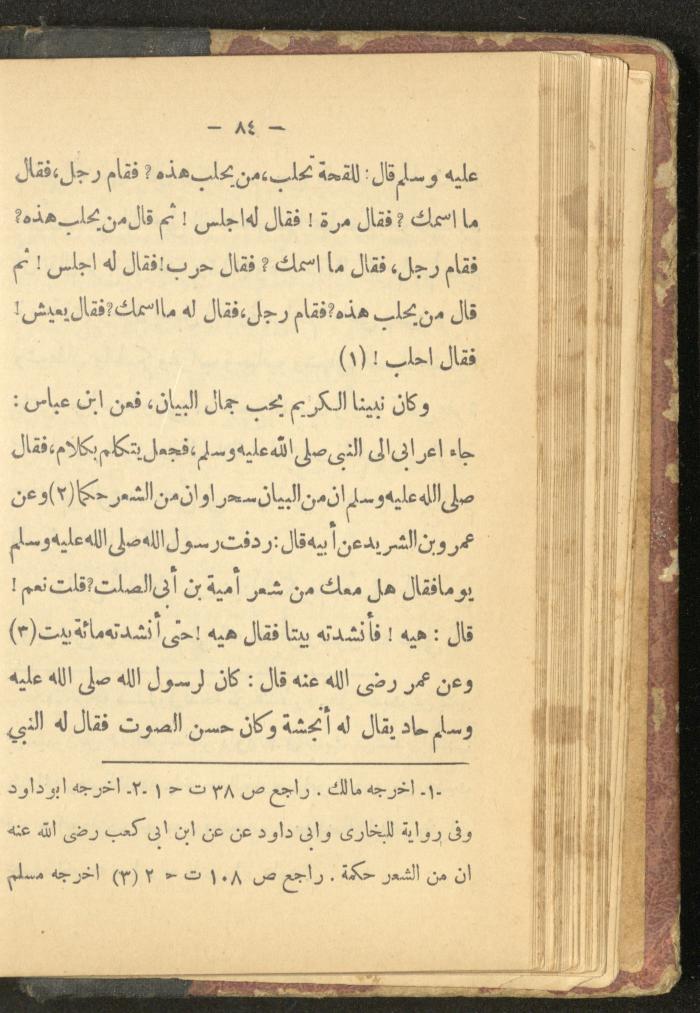 — ٨٤ —
عليه وسلم قال: للقحة تحلب، من يحلب هذه ? فقام رجل، فقال
ما اسمك ? فقال مرة ! فقال له اجلس ! ثم قال من يحلب هذه?
فقام رجل، فقال ما اسمك ? فقال حرب! فقال له اجلس ! ثم
قال من يحلب هذه? فقام رجل، فقال له ما اسمك? فقال يعيش!
فقال احلب ! (١)
وكان نبينا الكريم يحب جمال البيان، فعن ابن عباس :
جاء اعرابى الى النبى صلى الله عليه وسلم، فجعل يتكلم بكلام، فقال
صلى الله عليه وسلم ان من البيان سحرا وان من الشعر حكما (٢) وعن
عمرو بن الشريد عن أبيه قال: ردفت رسول الله صلى الله عليه وسلم
يوما فقال هل معك من شعر أمية بن أبى الصلت? قلت نعم !
قال : هيه ! فأنشدته بيتا فقال هيه ! حتى أنشدته مائة بيت (٣)
وعن عمر رضى الله عنه قال : كان لرسول الله صلى الله عليه
وسلم حاد يقال له أنجشة وكان حسن الصوت فقال له النبي
-١- اخرجه مالك . راجع ص ٣٨ ت ح ١ -٢- اخرجه ابو داود
وفى رواية للبخارى وابى داود عن عن ابن ابى كعب رضى الله عنه
ان من الشعر حكمة . راجع ص ١٠٨ ت ح ٢ (٣) اخرجه مسلم